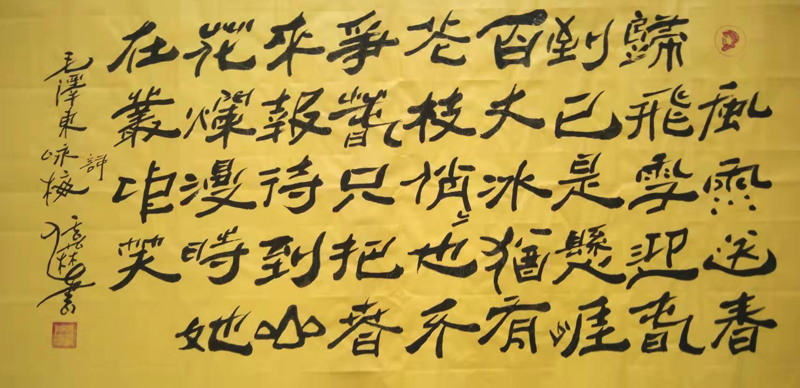 風雨送春
歸飛雪迎春
到已是懸崖
百丈冰猶有
花枝俏々也不
爭春只把春
來報待到山
花爛漫時她
在叢中笑
毛澤東咏梅
詩
林書